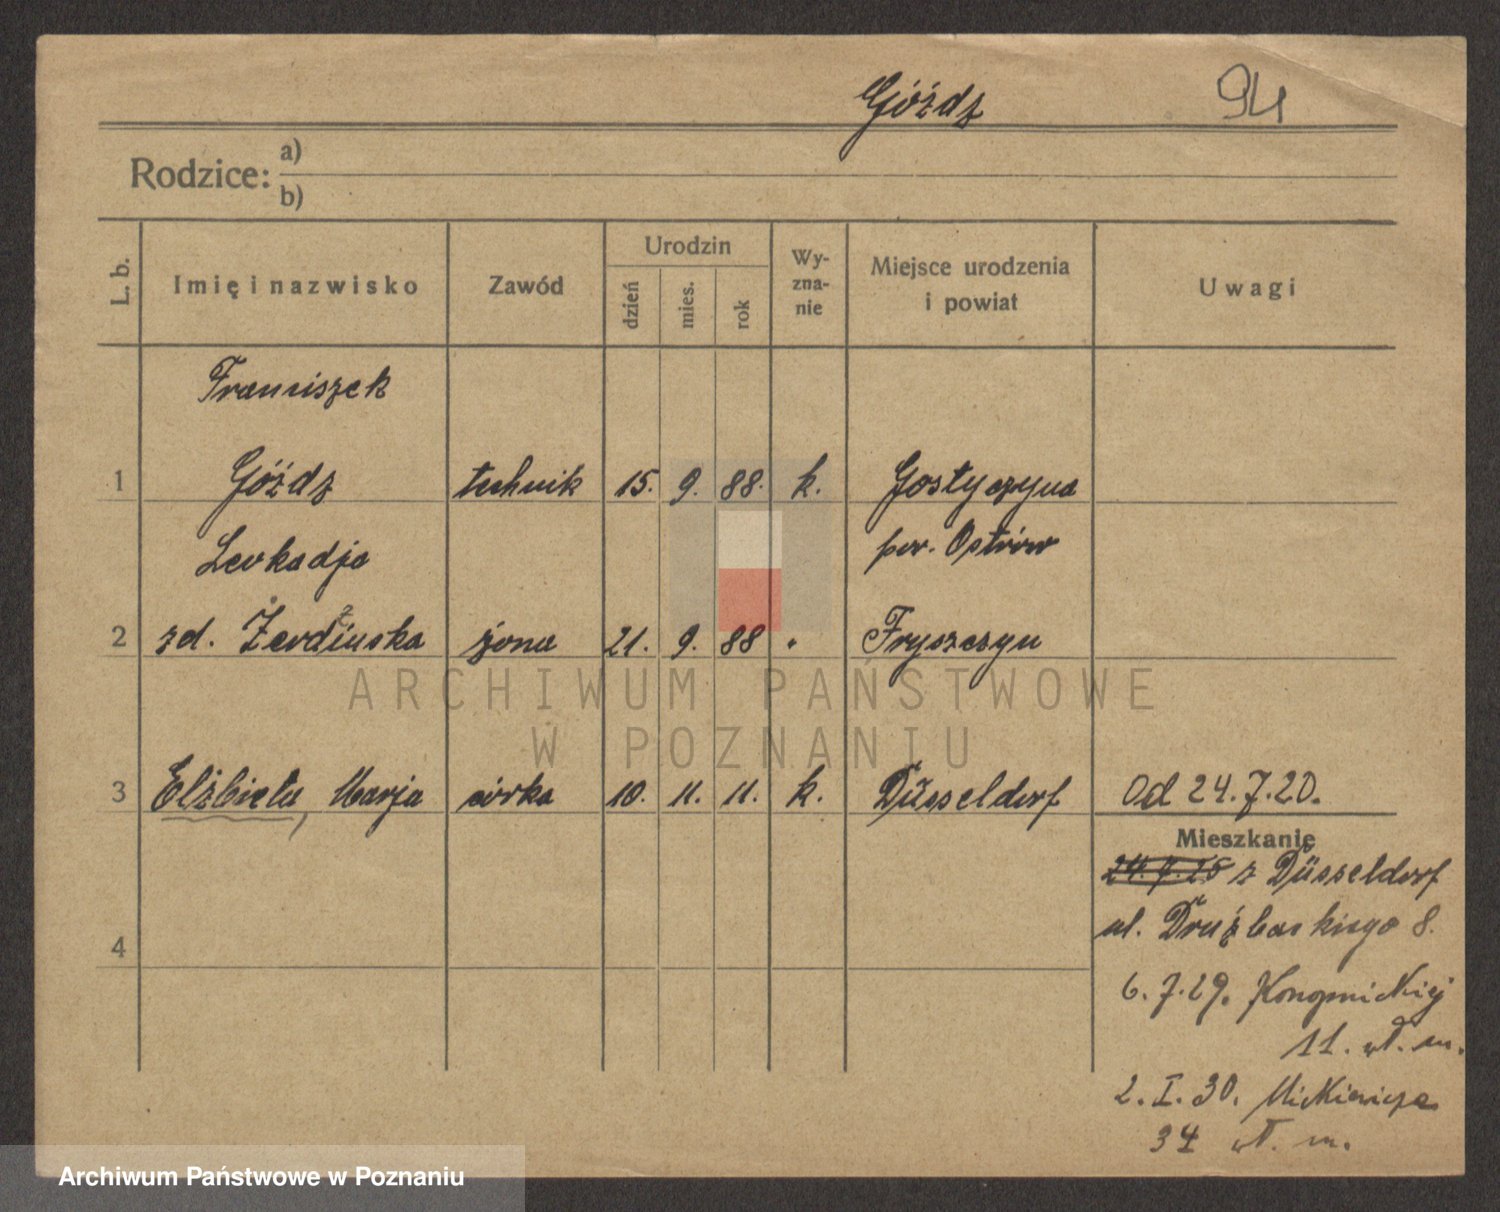 Góździ 94
Rodzice: a)
b)
L. b. Imię i nazwisko Zawód Urodzin dzień mies. rok Wyznanie Miejsce urodzenia i powiat Uwagi
Franciszek
1 Góźdź technik 15. 9. 88. k. Gostyczyna
Leokadja pow. Ostrów
2 zd. żona 21. 9. 88 " Fryszczyn
3 Elżbieta, Marja córka 10. 11. 11. k. Düsseldorf Od 24.7.20.
Mieszkanie
z Düsseldorf
ul. Drużbackiego 8.
4
6.7.29. Konopnickiej
11. wł. m.
2.I.30. Mickiewicza
34 wł. m.
ARCHIWUM PAŃSTWOWE
W POZNANIU
Archiwum Państwowe w Poznaniu